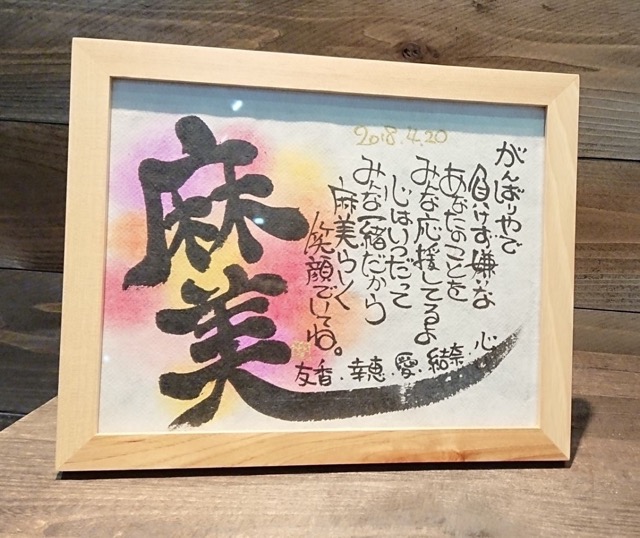 2018.4.20
がんばりやで
負けず嫌いな
あなたのことを
みんな応援してるよ
じはいつだって
みんな一緒だから
麻美らしく
笑顔でいてね。
心
結奈.
愛.
幸恵.
友香.
麻美